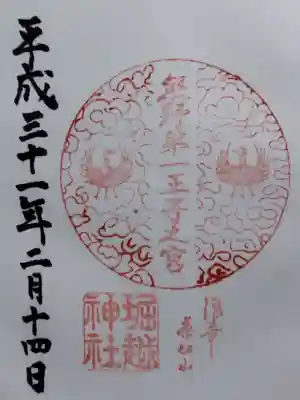 平成三十一年二月十四日
熊野第一王子之宮
堀越
神社